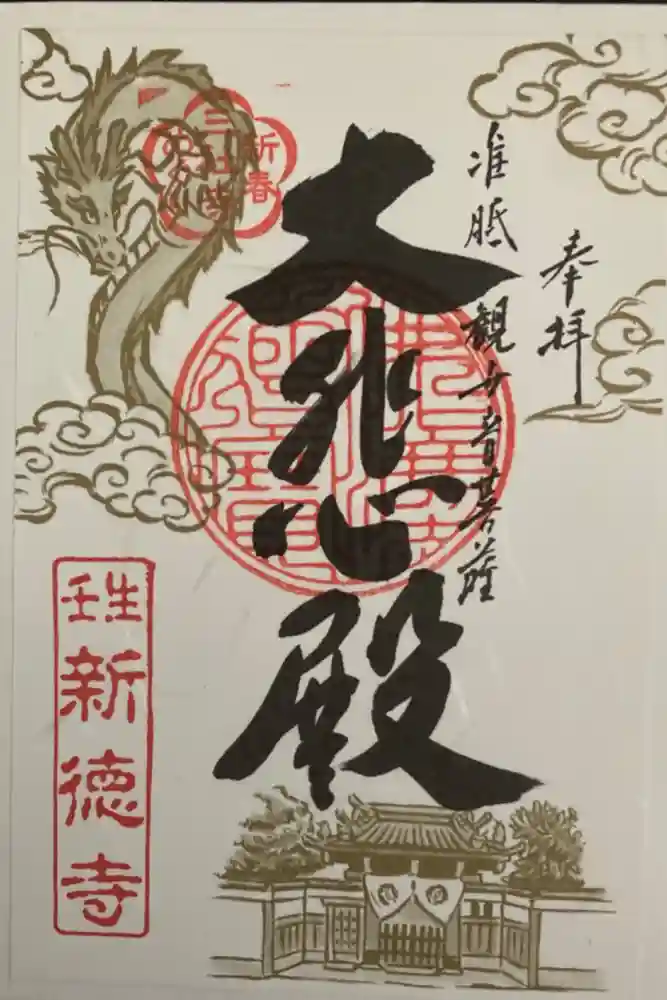 奉拝
准胝観世音菩薩
大悲殿
新春
壬生
新徳寺